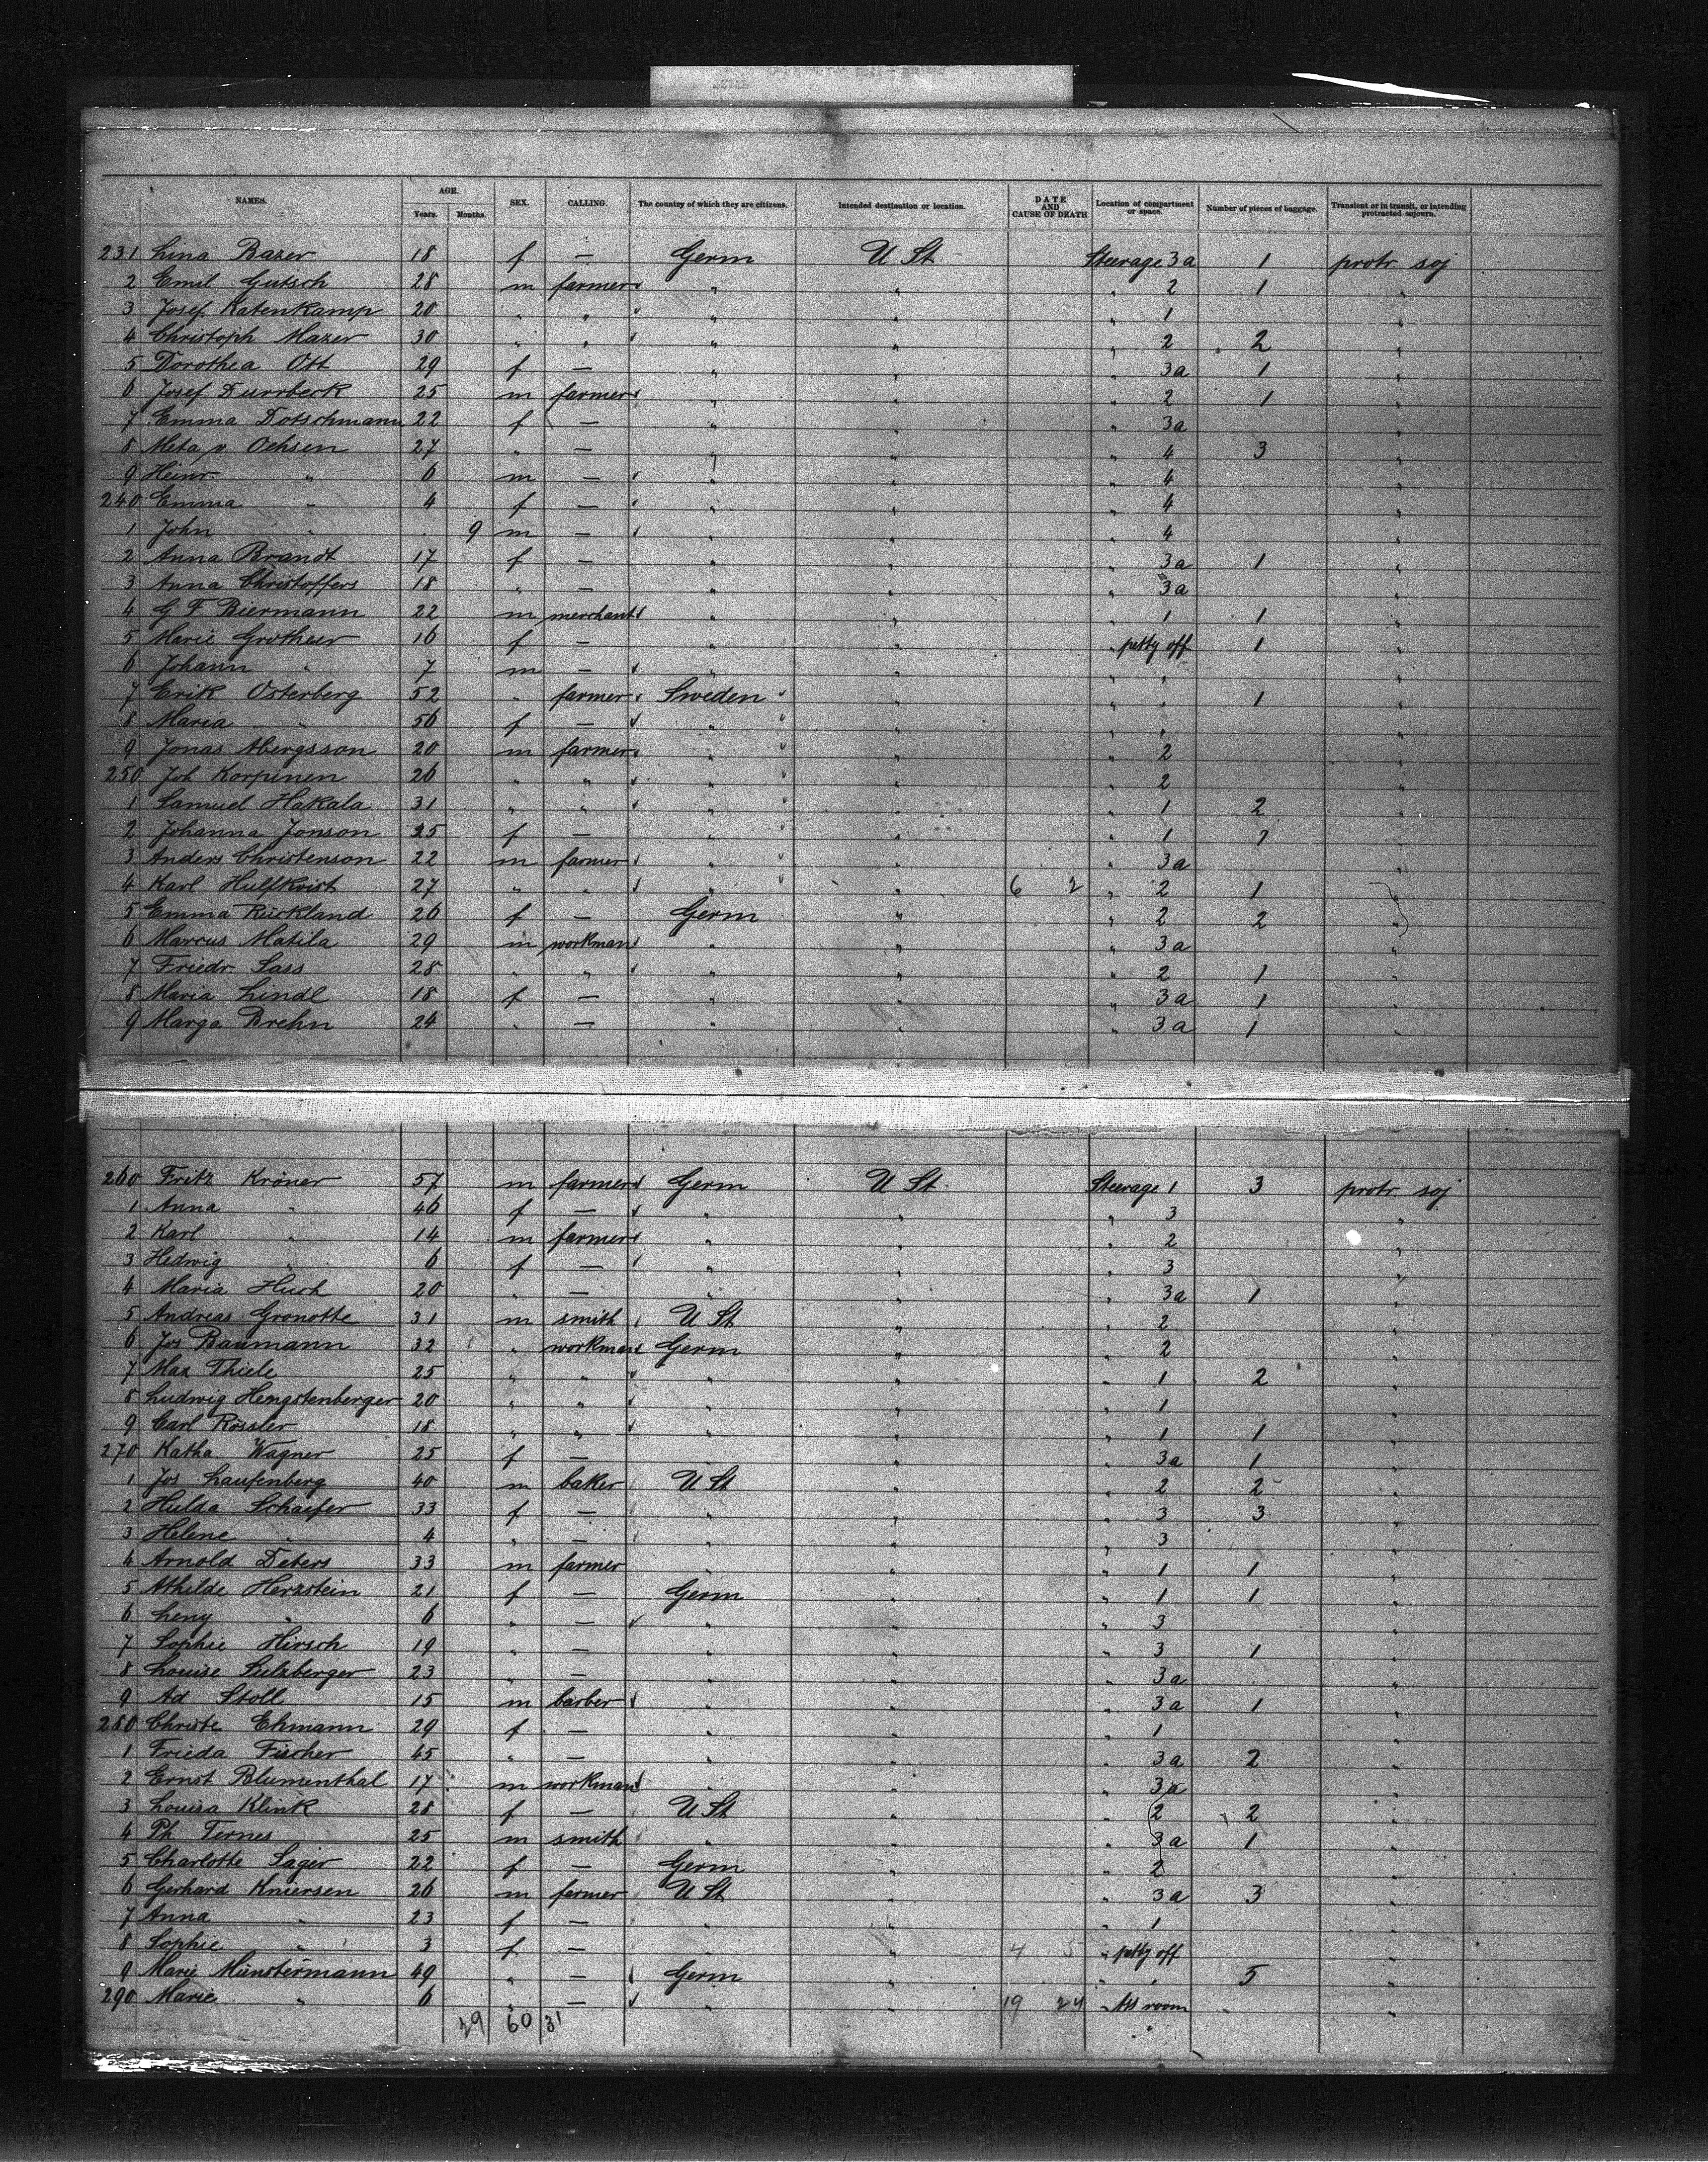 NAMES. AGE. Years. Months. SEX. CALLING. The country of which they are citizens. Intended destination or location. DATE AND CAUSE OF DEATH Location of compartment or space. Number of pieces of baggage. Transient or in transit, or intending protracted sojourn.
231 Lina Bazer 18 f — Germ U St Steerage 3a 1 protr soj
2 Emil Gutsch 28 m farmer " " " 2 1 "
3 Josef Katenkamp 20 " " " " " 1 "
4 Christoph Mazer 30 " " " " " 2 2 "
5 Dorothea Ott 29 f — " " " 3a 1 "
6 Josef Durrbeck 25 m farmer " " " 2 1 "
7 Emma Dotschmann 22 f — " " " 3a "
8 Meta v. Oehsen 27 " — " " " 4 3 "
9 Heinr. " 6 m — " " " 4 "
240 Emma " 4 f — " " " 4 "
1 John " 9 m — " " " 4 "
2 Anna Brandt 17 f — " " " 3a 1 "
3 Anna Christoffers 18 " — " " " 3a "
4 G F Biermann 22 m merchant " " " 1 1 "
5 Marie Grotheer 16 f — " " " petty off 1 "
6 Johann " 7 m — " " " " "
7 Erik Osterberg 52 " farmer Sweden " " " 1 "
8 Maria " 56 f — " " " " "
9 Jonas Abergsson 20 m farmer " " " 2 "
250 Joh Korpinen 26 " " " " " 2 "
1 Samuel Hakala 31 " " " " " 1 2 "
2 Johanna Jonson 25 f — " " " 1 1 "
3 Anders Christenson 22 m farmer " " " 3a "
4 Karl Hulfkvist 27 " " " " 6 2 " 2 1 "
5 Emma Rückland 26 f — Germ " " 2 2 "
6 Marcus Matila 29 m workman " " " 3a "
7 Friedr Sass 28 " " " " " 2 1 "
8 Maria Lindl 18 f — " " " 3a 1 "
9 Marga Brehn 24 " — " " " 3a 1 "
260 Fritz Kröner 57 m farmer Germ U St. Steerage 1 3 protr soj
1 Anna " 46 f — " " " 3 "
2 Karl " 14 m farmer " " " 2 "
3 Hedwig " 6 f — " " " 3 "
4 Maria Huch 20 " — " " " 3a 1 "
5 Andreas Gronotte 31 m smith U St " " 2 "
6 Jos Baumann 32 " workman Germ " " 2 "
7 Max Thiele 25 " " " " " 1 2 "
8 Ludwig Hengstenberger 20 " " " " " 1 "
9 Carl Rössler 18 " " " " " 1 1 "
270 Katha Wagner 25 f — " " " 3a 1 "
1 Jos Laufenberg 40 m baker U St " " 2 2 "
2 Hulda Schaefer 33 f — " " " 3 3 "
3 Helene " 4 " — " " " 3 "
4 Arnold Deters 33 m farmer " " " 1 1 "
5 Athilde Herzstein 21 f — Germ " " 1 1 "
6 Leny " 6 " — " " " 3 "
7 Sophie Hirsch 19 " — " " " 3 1 "
8 Louise Sulzberger 23 " — " " " 3a "
9 Ad Stoll 15 m barber " " " 3a 1 "
280 Christe Ehmann 29 f — " " " 1 "
1 Frieda Fischer 45 " — " " " 3a 2 "
2 Ernst Blumenthal 17 m workman " " " 3a "
3 Louisa Klink 28 f — U St " " 2 2 "
4 Ph Ternes 25 m smith " " " 3a 1 "
5 Charlotte Sager 22 f — Germ " " 2 "
6 Gerhard Kniersen 26 m farmer U St " " 3a 3 "
7 Anna " 23 f — " " " 1 "
8 Sophie " 3 f — " " 4 5 " petty off "
9 Marie Münstermann 49 " — Germ " " " 5 "
290 Marie " 6 " — " " 19 24 " room "
29 60 31